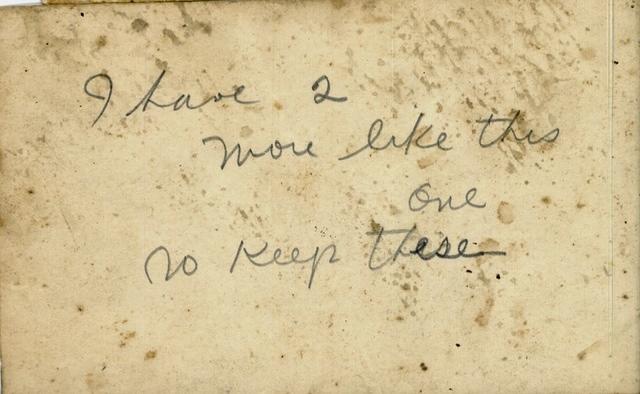 I have 2
more like this
one
so keep these